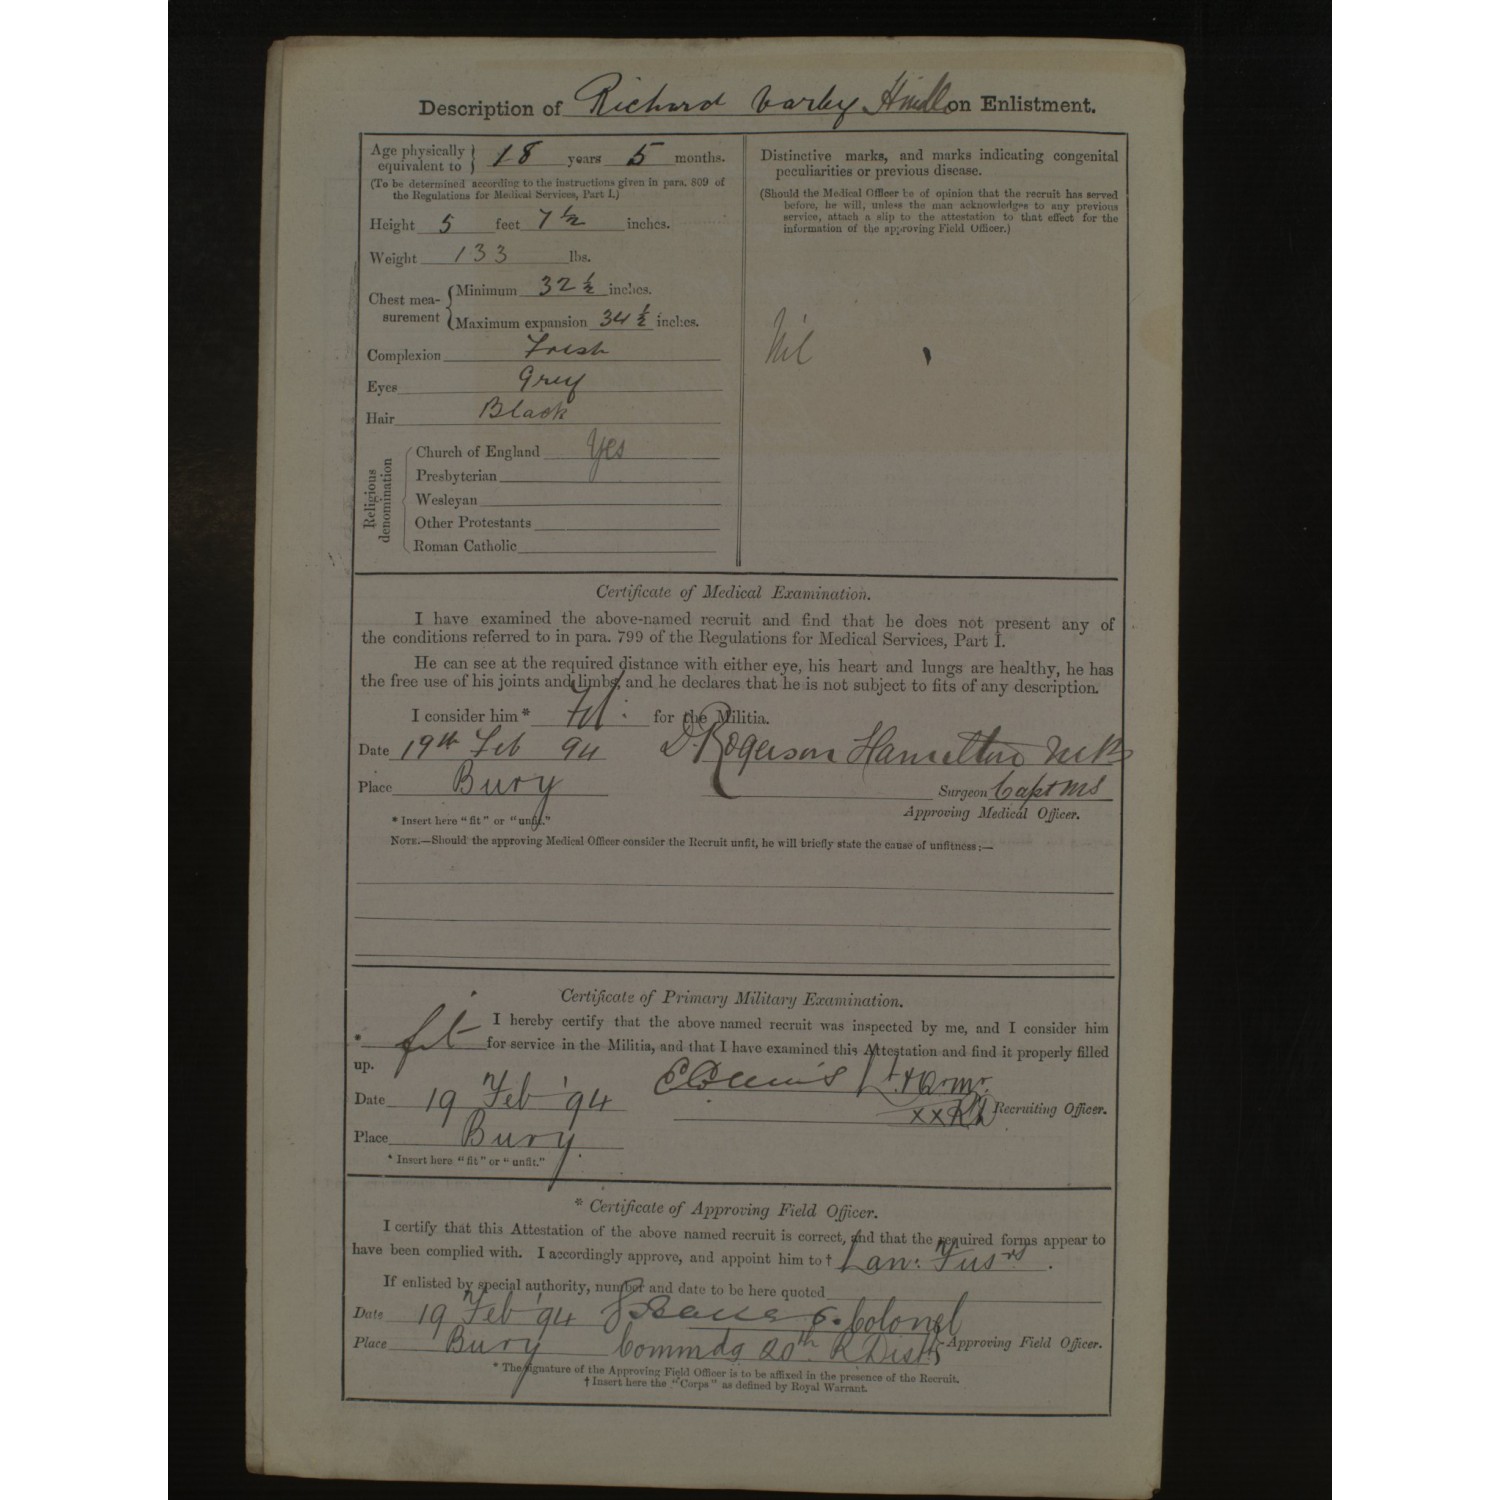 Description of Richard Varley Hindle on Enlistment.
Age physically equivalent to 18 years 5 months.
(To be determined according to the instructions given in para. 809 of
the Regulations for Medical Services, Part I.)
Height 5 feet 7 ½ inches.
Weight 133 lbs.
Chest mea-
surement
Minimum 32 ½ inches.
Maximum expansion 34 ½ inches.
Complexion Fresh
Eyes Grey
Hair Black
Religious denomination
Church of England Yes
Presbyterian
Wesleyan
Other Protestants
Roman Catholic
Distinctive marks, and marks indicating congenital
peculiarities or previous disease.
(Should the Medical Officer be of opinion that the recruit has served
before, he will, unless the man acknowledges to any previous
service, attach a slip to the attestation to that effect for the
information of the approving Field Officer.)
Nil
Certificate of Medical Examination.
I have examined the above-named recruit and find that he does not present any of
the conditions referred to in para. 799 of the Regulations for Medical Services, Part I.
He can see at the required distance with either eye, his heart and lungs are healthy, he has
the free use of his joints and limbs, and he declares that he is not subject to fits of any description.
I consider him * Fit for the Militia.
Date 19th Feb 94 D. Rogerson Hamilton MB
Place Bury Surgeon Capt MS
Approving Medical Officer.
* Insert here "fit" or "unfit."
NOTE.—Should the approving Medical Officer consider the Recruit unfit, he will briefly state the cause of unfitness:—
Certificate of Primary Military Examination.
I hereby certify that the above named recruit was inspected by me, and I consider him
* fit for service in the Militia, and that I have examined this Attestation and find it properly filled
up.
Date 19 Feb '94 Lt & Qr Mr
XX RD Recruiting Officer.
Place Bury
* Insert here "fit" or "unfit."
* Certificate of Approving Field Officer.
I certify that this Attestation of the above named recruit is correct, and that the required forms appear to
have been complied with. I accordingly approve, and appoint him to † Lan: Fusrs.
If enlisted by special authority, number and date to be here quoted
Date 19 Feb '94 Colonel
Place Bury Commdg 20th R Dist Approving Field Officer.
* The signature of the Approving Field Officer is to be affixed in the presence of the Recruit.
† Insert here the "Corps" as defined by Royal Warrant.